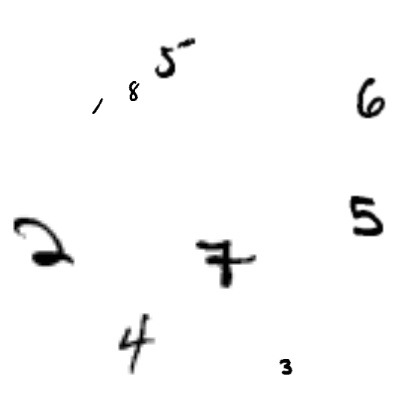 5
1 8
6
5
2 7
4
3